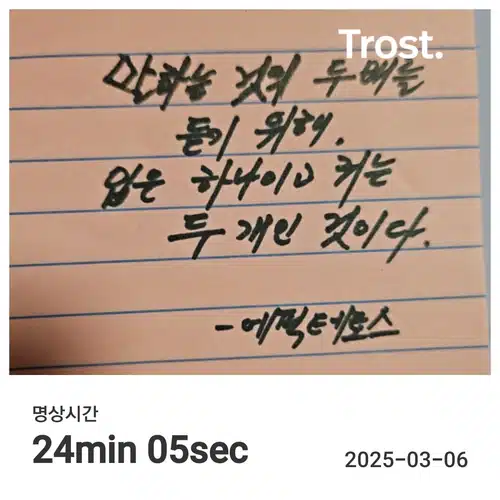 Trost.
말하는 것의 두 배를
듣기 위해.
입은 하나이고 귀는
두 개인 것이다.
-에픽테토스
명상시간
24min 05sec
2025-03-06